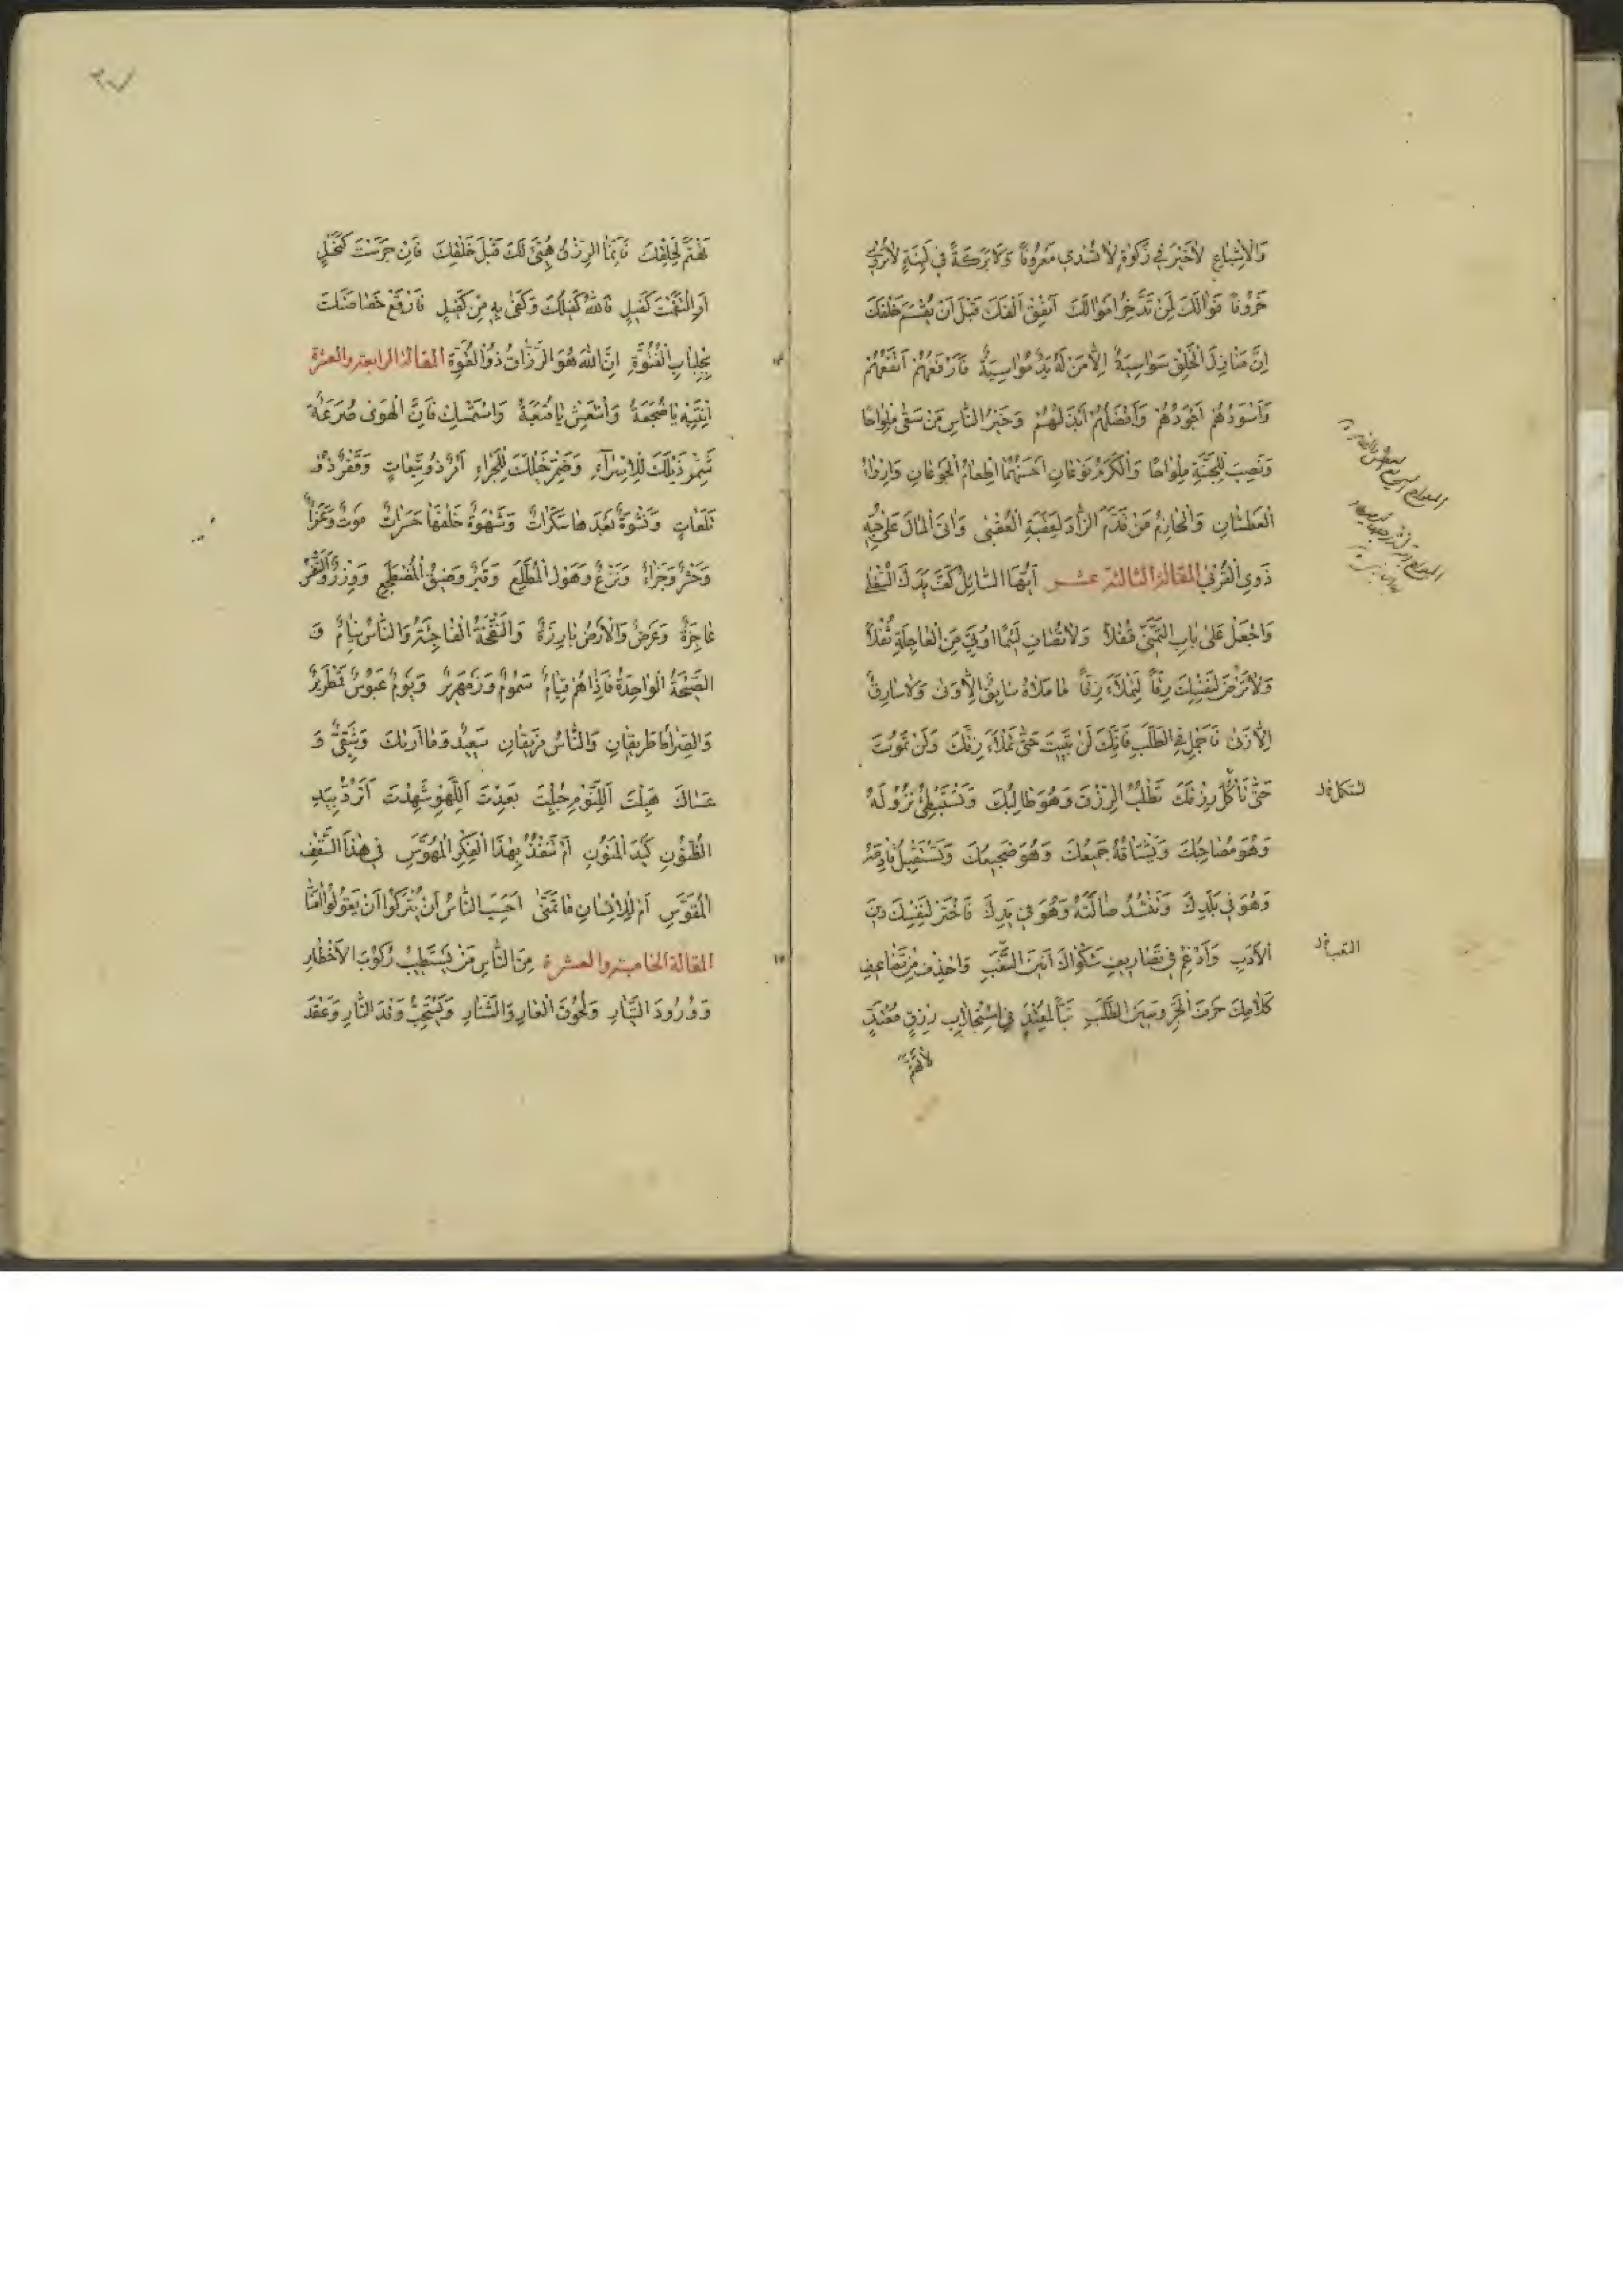 وَالْاِشْبَاعِ لَاخَيْرَ فِي زَكٰوةٍ لَا تُسْدِي مَعْرُوفًا وَلَابَرَكَةً فِي لَبِنَةٍ لَاتُرْوِي
خَرُوفًا فَوَالَكَ لِمَنْ تَدَّخِرُ اَمْوَالَكَ اَنْفِقْ اَلْفَكَ قَبْلَ اَنْ يُقْسَمَ خَلْفَكَ
اِنَّ مَنَازِلَ الْخَلْقِ سَوَاسِيَةٌ اِلَّا مَنْ لَهُ يَدٌ مُوَاسِيَةٌ فَاَرْفَعُهُمْ اَنْفَعُهُمْ
وَاَسْوَدُهُمْ اَجْوَدُهُمْ وَاَفْضَلُهُمْ اَبْذَلُهُمْ وَخَيْرُ النَّاسِ مَنْ سَقٰى مِلْوَاحًا
وَنَصَبَ لِلْجَنَّةِ مِلْوَاحًا وَالْكَرَمُ نَوْعَانِ اَحْسَنُهُمَا اِطْعَامُ الْجَوْعَانِ وَاِرْوَاءُ
الْعَطْشَانِ وَالْحَازِمُ مَنْ قَدَّمَ الزَّادَ لِعَقَبَةِ الْعُقْبٰى وَاٰتَى الْمَالَ عَلٰى حُبِّهِ
ذَوِي الْقُرْبٰى المقالة الثالثة عشر اَيُّهَا السَّائِلُ كُفَّ يَدَكَ السُّفْلٰى
وَاجْعَلْ عَلٰى بَابِ التَّمَنِّي قُفْلًا وَلَا
وَلَا لِنَفْسِكَ زِقًّا لِتَمْلَأَهُ رِزْقًا فَمَا مَلَاهُ سَابِقُ الْاَوْفٰى وَلَا سَارِقُ
الْاَرْنٰى فَاَجْمِلْ فِي الطَّلَبِ فَاِنَّكَ لَنْ تَبِيتَ حَتّٰى تَمْلَأَ زِقَّكَ وَلَنْ تَمُوتَ
حَتّٰى تَأْكُلَ رِزْقَكَ تَطْلُبُ الرِّزْقَ وَهُوَ طَالِبُكَ وَتَسْتَبْطِئُ نُزُولَهُ
وَهُوَ مُصَاحِبُكَ وَيَشْتَاقُهُ جَمِيعُكَ وَهُوَ ضَجِيعُكَ وَتَسْتَقْبِلُ قَادِمَهُ
وَهُوَ فِي بَلَدِكَ وَتَنْشُدُ ضَالَّتَهُ وَهُوَ فِي يَدِكَ فَاخْتَرْ لِنَفْسِكَ دِينَ
الْاَدَبِ وَاَدْغِمْ فِي تَصَارِيفِ شَكْوَاكَ اَنِينَ التَّعَبِ وَاحْذِفْ مِنْ تَضَاعِيفِ
كَلَامِكَ حَرْفَ الْجَرِّ وَسِينَ الطَّلَبِ تَبًّا لِمُعْتَدٍ فِي اسْتِجْلَابِ رِزْقٍ مُعْتَدٍّ
لَاتَهْتَمَّ
تَهْتَمَّ لِخَلْقِكَ فَاِنَّمَا الرِّزْقُ هُيِّئَ لَكَ قَبْلَ خَلْقِكَ فَاِنْ حَرَسْتَ كَنَخْلٍ
اَوِ الْتَقَمْتَ كَفِيلٍ فَاللّٰهُ كَفِيلُكَ وَكَفٰى بِهِ مِنْ كَفِيلٍ فَارْقَعْ خَصَاصَتَكَ
بِجِلْبَابِ الْفُتُوَّةِ اِنَّ اللّٰهَ هُوَ الرَّزَّاقُ ذُو الْقُوَّةِ المقالة الرابعة والعشرة
اِنْتَبِهْ يَا ضُجَعَةُ وَانْتَعِشْ يَا ضُعَةُ وَاسْتَمْسِكْ فَاِنَّ الْهَوٰى صُرَعَةٌ
شَمِّرْ ذَيْلَكَ لِلْاِسْرَاءِ وَضَمِّرْ خَيْلَكَ لِلْجِرَاءِ اَمْرٌ ذُو تَبِعَاتٍ وَقَفْرٌ ذُو
تَلَعَاتٍ وَنَشْوَةٌ بَعْدَهَا سَكَرَاتٌ وَشَهْوَةٌ خَلْفَهَا حَسَرَاتٌ مَوْتٌ وَ
وَحَشْرٌ وَجَزَاءٌ وَنَزْعٌ وَهَوْلُ الْمُطَّلَعِ وَقَبْرٌ وَضِيقُ الْمُضْطَجَعِ وَوِزْرٌ
عَاجِزَةٌ وَعَرْضٌ وَالْاَرْضُ بَارِزَةٌ وَالنَّفْخَةُ الْفَاجِئَةُ وَالنَّاسُ نِيَامٌ وَ
الصَّيْحَةُ الْوَاحِدَةُ فَاِذَا هُمْ قِيَامٌ سَمُومٌ وَزَمْهَرِيرٌ وَيَوْمٌ عَبُوسٌ قَمْطَرِيرٌ
وَالصِّرَاطُ طَرِيقَانِ وَالنَّاسُ فَرِيقَانِ سَعِيدٌ وَمَا اَرٰيكَ وَشَقِيٌّ وَ
عَسَاكَ هَبِلْتَ اَلِلنَّوْمِ جُلِبْتَ بَعِدْتَ اَلِلَّهْوِ شَهِدْتَ اَتَرُدُّ بِيَدِ
الظُّنُونِ كَيْدَ الْمَنُونِ اَمْ تَنْفُذُ بِهٰذَا الْفِكْرِ الْمُهَوَّسِ فِي هٰذَا السَّقْفِ
الْمُقَوَّسِ اَمْ لِلْاِنْسَانِ مَا تَمَنّٰى اَحَسِبَ النَّاسُ اَنْ يُتْرَكُوا اَنْ يَقُولُوا اٰمَنَّا
المقالة الخامسة والعشرة مِنَ النَّاسِ مَنْ يَسْتَطِيبُ رُكُوبَ الْاَخْطَارِ
وَوُرُودَ التَّيَّارِ وَلُحُوقَ الْعَارِ وَالشَّنَارِ وَيَسْتَحِبُّ وَقْدَ النَّارِ وَعَقْدَ